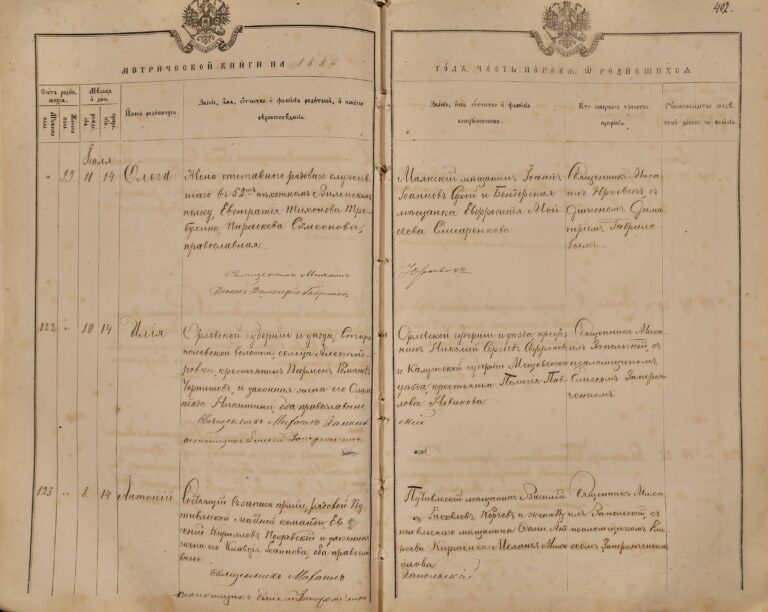 402.
МЕТРИЧЕСКОЙ КНИГИ НА 1885
ГОДЪ, ЧАСТЬ ПЕРВАЯ, О РОДИВШИХСЯ.
Счетъ родив-
шихся.
Мужеска пола
Женска пола
Мѣсяцъ и день
рожде-нія.
креще-нія.
Имена родившихся.
Званіе, имя, отчество и фамилія родителей, и какого
вѣроисповѣданія.
Званіе, имя, отчество и фамилія
воспріемниковъ.
Кто совершалъ таинство
крещенія.
Рукоприкладство свидѣ-
телей записи по желанію.
Іюля
29 11 14 Ольга
Жена отставнаго рядоваго служив-
шаго въ 52мъ пѣхотномъ Виленскомъ
полку, Евстратія Тихонова
Параскева Симеонова,
православная.
Священникъ Михаилъ
Діаконъ Димитрій Гавриловъ
Маякскій мѣщанинъ Іоаннъ
Іоанновъ Сухой и Бендерская
мѣщанка Евфросинія Мой-
сеева Слисаренкова
Священникъ Миха-
илъ Юрковичъ съ
Діакономъ Дими-
тріемъ Гаврило-
вымъ.
Юрковичъ
122 " 10 14 Илія
Орловской губерніи и уѣзда,
волости, сельца Алексан-
дровки, крестьянинъ Парменъ Романовъ
Чернышовъ, и законная жена его Олим-
піада Никитина, оба православные
Священникъ Михаилъ Запольскій
Псаломщикъ Елисей Запорожченко
Орловской губерніи и уѣзда крестья-
нинъ Николай Сергѣевъ
и Калужской губерніи Мещовскаго
уѣзда крестьянка Пелагія Пав-
лова Новикова
Священникъ Миха-
илъ Запольскій, съ
псаломщикомъ
Елисеемъ Запорож-
ченкомъ.
123 " 8. 14 Антоній
Состоящій въ запасѣ арміи, рядовой Пу-
тивльской мѣстной команды, Ев-
геній Кирилловъ Покровскій и законная
жена его Клавдія Іоаннова, оба православ-
ные.
Священникъ Михаилъ
Запольскій
Псаломщикъ Елисей Запорожченко
Путивльскій мѣщанинъ Василій
Яковлевъ и жена Пу-
тивльскаго мѣщанина
Меланія Миха-
илова
Священникъ Миха-
илъ Запольскій, съ
псаломщикомъ Ели-
сеемъ Запорожченкомъ